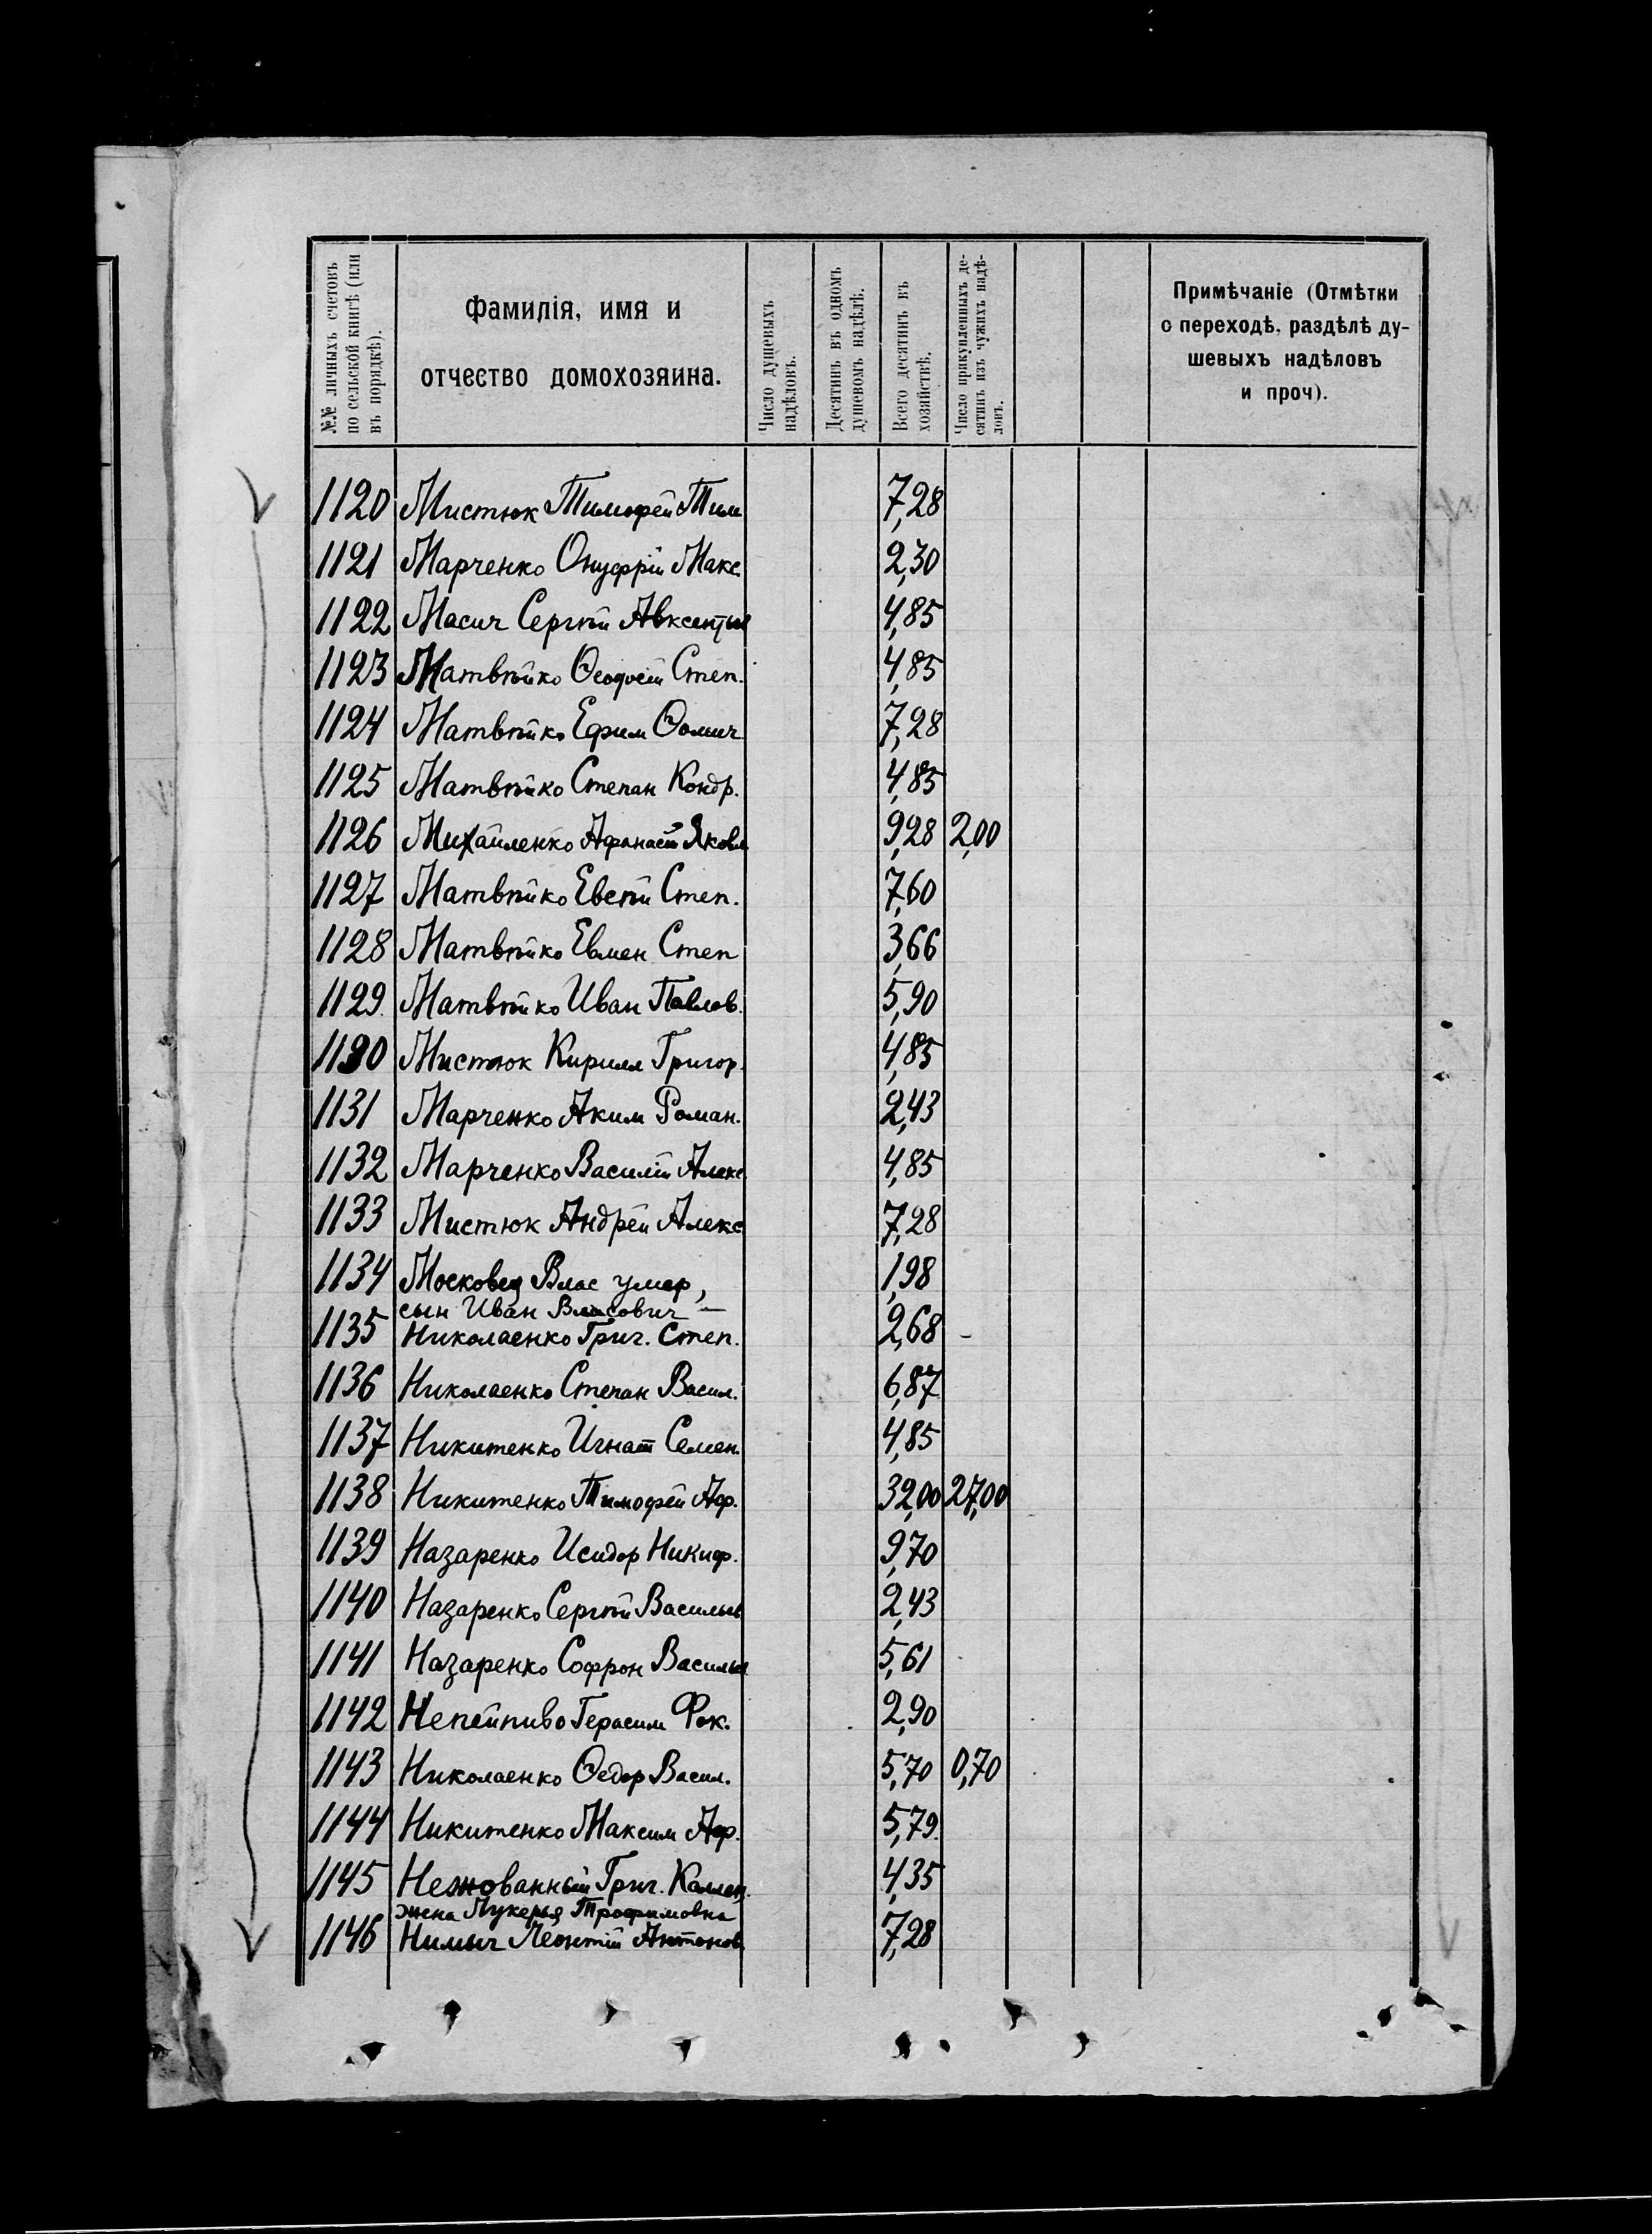 №№ личныхъ счетовъ
по сельской книгѣ (или
въ порядкѣ).
Фамилія, имя и
отчество домохозяина.
Число душевыхъ
надѣловъ.
Десятинъ въ одномъ
душевомъ надѣлѣ.
Всего десятинъ въ
хозяйствѣ.
Число прикупленныхъ де-
сятинъ изъ чужихъ надѣ-
ловъ.
Примѣчаніе (Отмѣтки
о переходѣ, раздѣлѣ ду-
шевыхъ надѣловъ
и проч).
1120 Мистюк Тимофей Тим 7,28
1121 Марченко Онуфрій Макс. 2,30
1122 Масич Сергѣй Авксентьев 4,85
1123 Матвѣйко Ѳеодосій Степ. 4,85
1124 Матвѣйко Ефим Ѳомич 7,28
1125 Матвѣйко Степан Кондр. 4,85
1126 Михайленко Афанасій Яковл 9,28 2,00
1127 Матвѣйко Евсѣй Степ. 7,60
1128 Матвѣйко Евмен Степ 3,66
1129 Матвѣйко Иван Павлов. 5,90
1130 Мистюк Кирилл Григор. 4,85
1131 Марченко Аким Роман. 2,43
1132 Марченко Василій Алекс 4,85
1133 Мистюк Андрей Алекс 7,28
1134 Московец Влас умер, 1,98
сын Иван Власович —
1135 Николаенко Григ. Степ. 2,68 -
1136 Николаенко Степан Васил. 6,87
1137 Никитенко Игнат Семен. 4,85
1138 Никитенко Тимофей Аф. 32,00 27,00
1139 Назаренко Исидор Никиф. 9,70
1140 Назаренко Сергѣй Васильев 2,43
1141 Назаренко Софрон Васильев 5,61
1142 Непейпиво Герасим Фок. 2,90
1143 Николаенко Ѳедор Васил. 5,70 0,70
1144 Никитенко Максим Аф. 5,79
1145 Нежованный Григ. 4,35
жена Лукерья Трофимовна
1146 Нимич Леонтій Антонов. 7,28